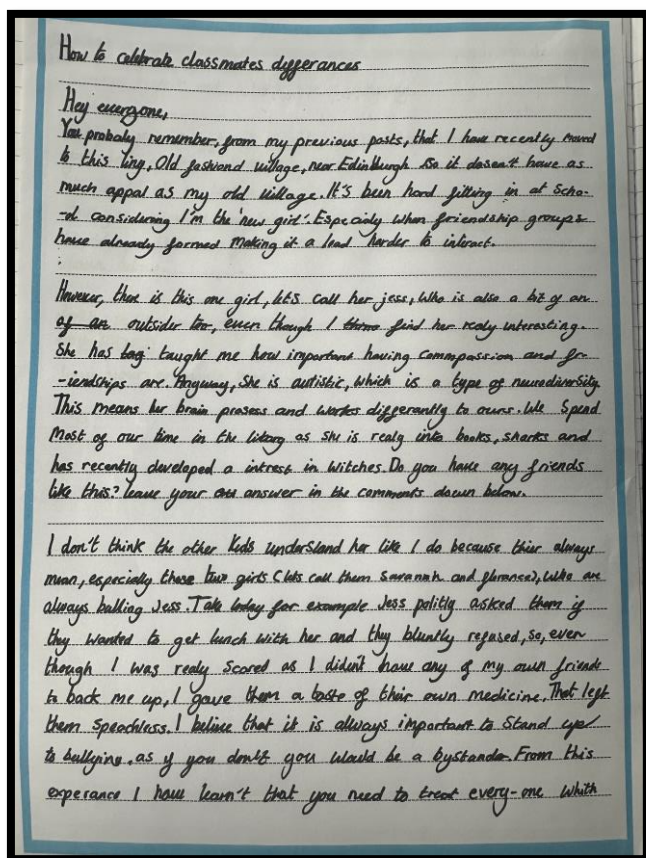 How to celebrate classmates differances
Hey everyone,
You probaly remember, from my previous posts, that I have recently moved
to this tiny, Old fashiond village, near Edinburgh so it doesen't have as
much appal as my old village. It's been hard fitting in at Scho-
-ol considering I'm the 'new girl'. Especialy when friendship groups
have already formed making it a load harder to interact.
However, ther is this one girl, lets call her jess, Who is also a bit of an
of an outsider too, even though I find her realy interesting.
She has taught me how important having commpassion and fr-
-iendships are. Anyway, She is autistic, which is a type of neurodiversity.
This means her brain prosess and workes differantly to ours. We Spend
Most of our time in the libary as she is realy into books, sharks and
has recently developed a intrest in Witches. Do you have any friends
like this? leave your answer in the comments down below.
I don't think the other Kids understand her like I do because thier always
mean, especially these two girls (lets call them Savannah and florance), Who are
always bulling Jess. Take today for example Jess politly asked them if
they wanted to get lunch with her and they bluntly refused, so, even
though I was realy Scared as I didn't have any of my own friends
to back me up, I gave them a taste of thier own medicine. That left
them speachless. I belive that it is allways important to Stand up
to bullying, as if you don't you would be a bystander. From this
experance I have learn't that you need to treat every-one whith